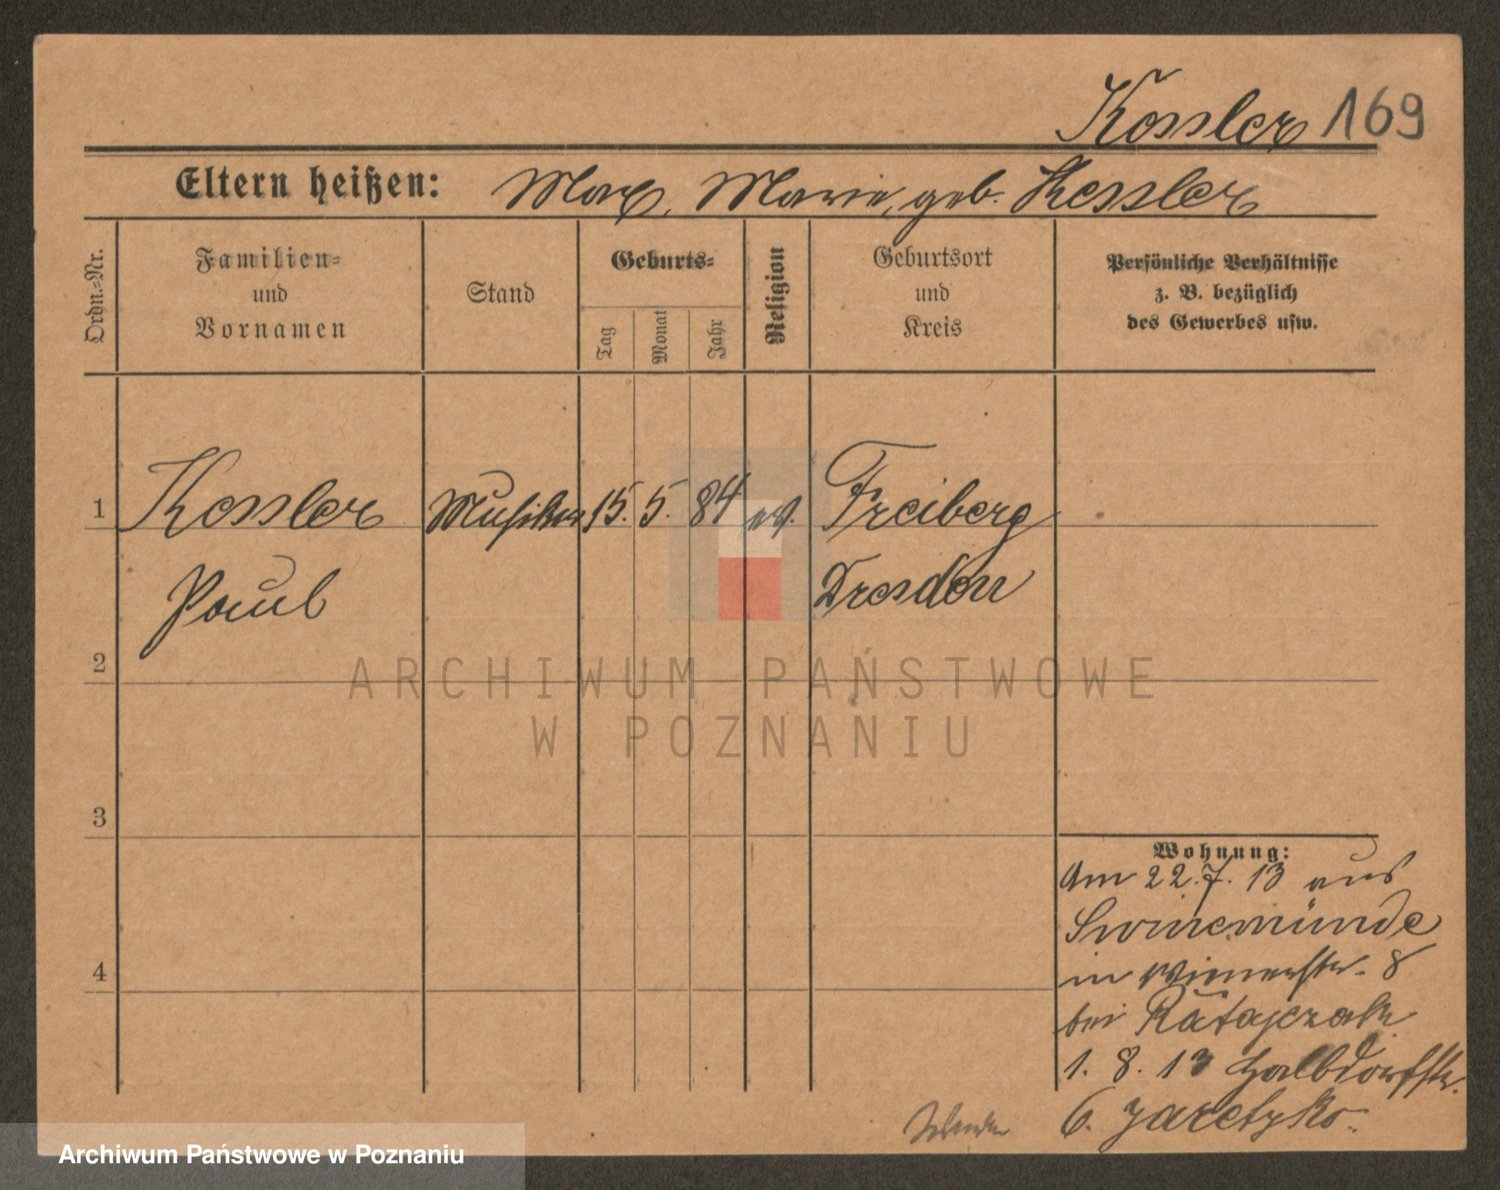 Kessler 169
Eltern heißen: Max, Marie, geb. Kessler
Ordn.-Nr.
Familien-
und
Vornamen
Stand
Geburts-
Tag
Monat
Jahr
Religion
Geburtsort
und
Kreis
Persönliche Verhältnisse
z. B. bezüglich
des Gewerbes usw.
1 Kessler Musiker 15. 5. 84 ev. Freiberg
Paul Dresden
2
ARCHIWUM PAŃSTWOWE
W POZNANIU
3
Wohnung:
Am 22.7.13 aus
Swinemünde
4
in str. 8
bei Ratajczak
1. 8. 13 Halbdorfstr.
6.
Archiwum Państwowe w Poznaniu